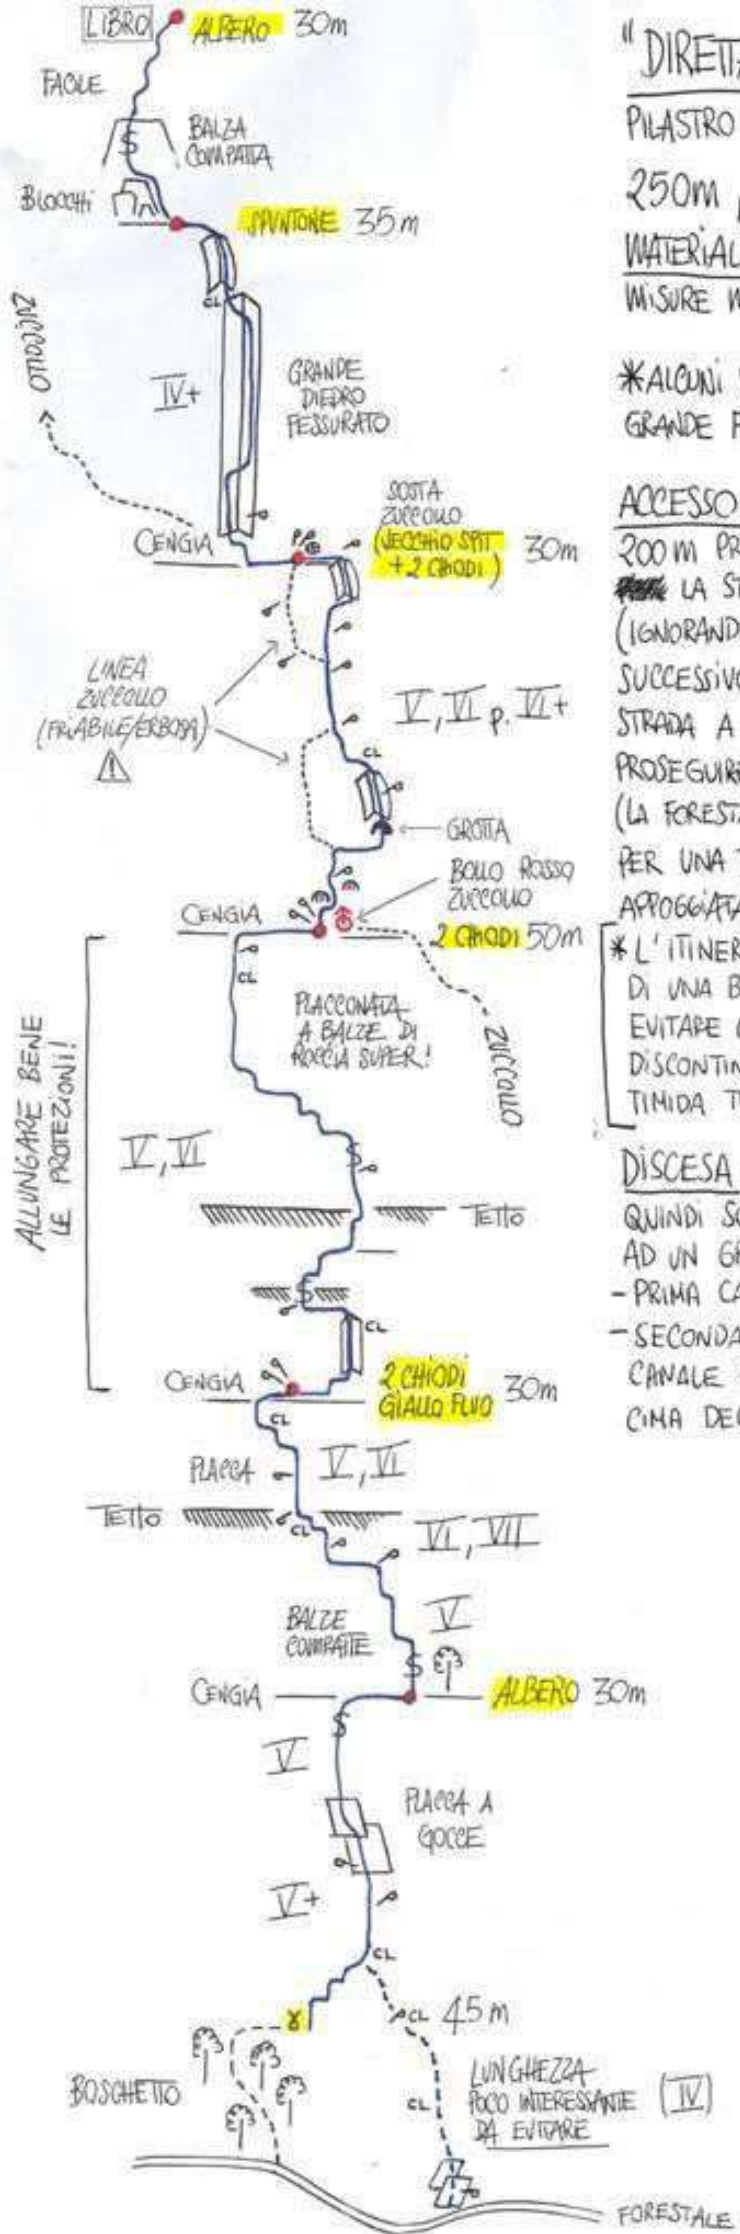 LIBRO
ALBERO 30m
FACILE
BALZA
COMPATTA
BLOCCHI
SPUNTONE 35m
CL
ZUCCOLLO
IV+
GRANDE
DIEDRO
FESSURATO
SOSTA
ZUCCOLLO
(VECCHIO SPIT
+ 2 CHIODI) 30m
CENGIA
LINEA
ZUCCOLLO
(FRIABILE/ERBOSA)
V, VI p. VI+
CL
GROTTA
BOLLO ROSSO
ZUCCOLLO
CENGIA
2 CHIODI 50m
CL
PLACCONATA
A BALZE DI
ROCCIA SUPER!
ZUCCOLLO
ALLUNGARE BENE
LE PROTEZIONI!
V, VI
TETTO
CL
CENGIA
2 CHIODI
GIALLO FLUO 30m
CL
PLACCA
V, VI
TETTO
CL
VI, VII
BALZE
COMPATTE
V
CENGIA
ALBERO 30m
V
PLACCA A
GOCCE
V+
CL
CL 45 m
BOSCHETTO
CL
LUNGHEZZA
POCO INTERESSANTE (IV)
DA EVITARE
FORESTALE
"DIRETTA
PILASTRO
250m
MATERIAL
MISURE M
*ALCUNI
GRANDE F
ACCESSO
200 m PR
LA ST
(IGNORAND
SUCCESSIVO
STRADA A
PROSEGUIRE
(LA FORESTA
PER UNA T
APPOGGIATA
* L'ITINER
DI UNA B
EVITARE
DISCONTIN
TIMIDA T
DISCESA
QUINDI SC
AD UN GR
- PRIMA CA
- SECONDA
CANALE
CIMA DEL